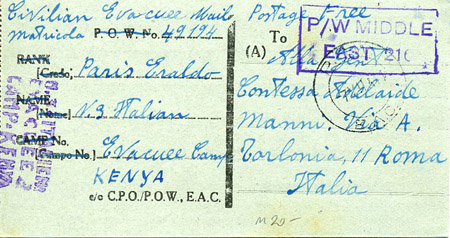 Civilian Evacuee Mail
Matricola P. O. W. No. 49194
RANK
[Grado] Paris Eraldo
NAME
[Nome] N.3 Italian
CAMP No.
[Campo No.] Evacuee Camp
KENYA
c/o C.P.O./P.O.W., E.A.C.
EVACUEE
CAMP. KENYA
Postage Free
P/W MIDDLE
EAST/216
To
(A) Alla
Contessa Adelaide
Manni. Via A.
Torlonia, 11 Roma
Italia
M 20-